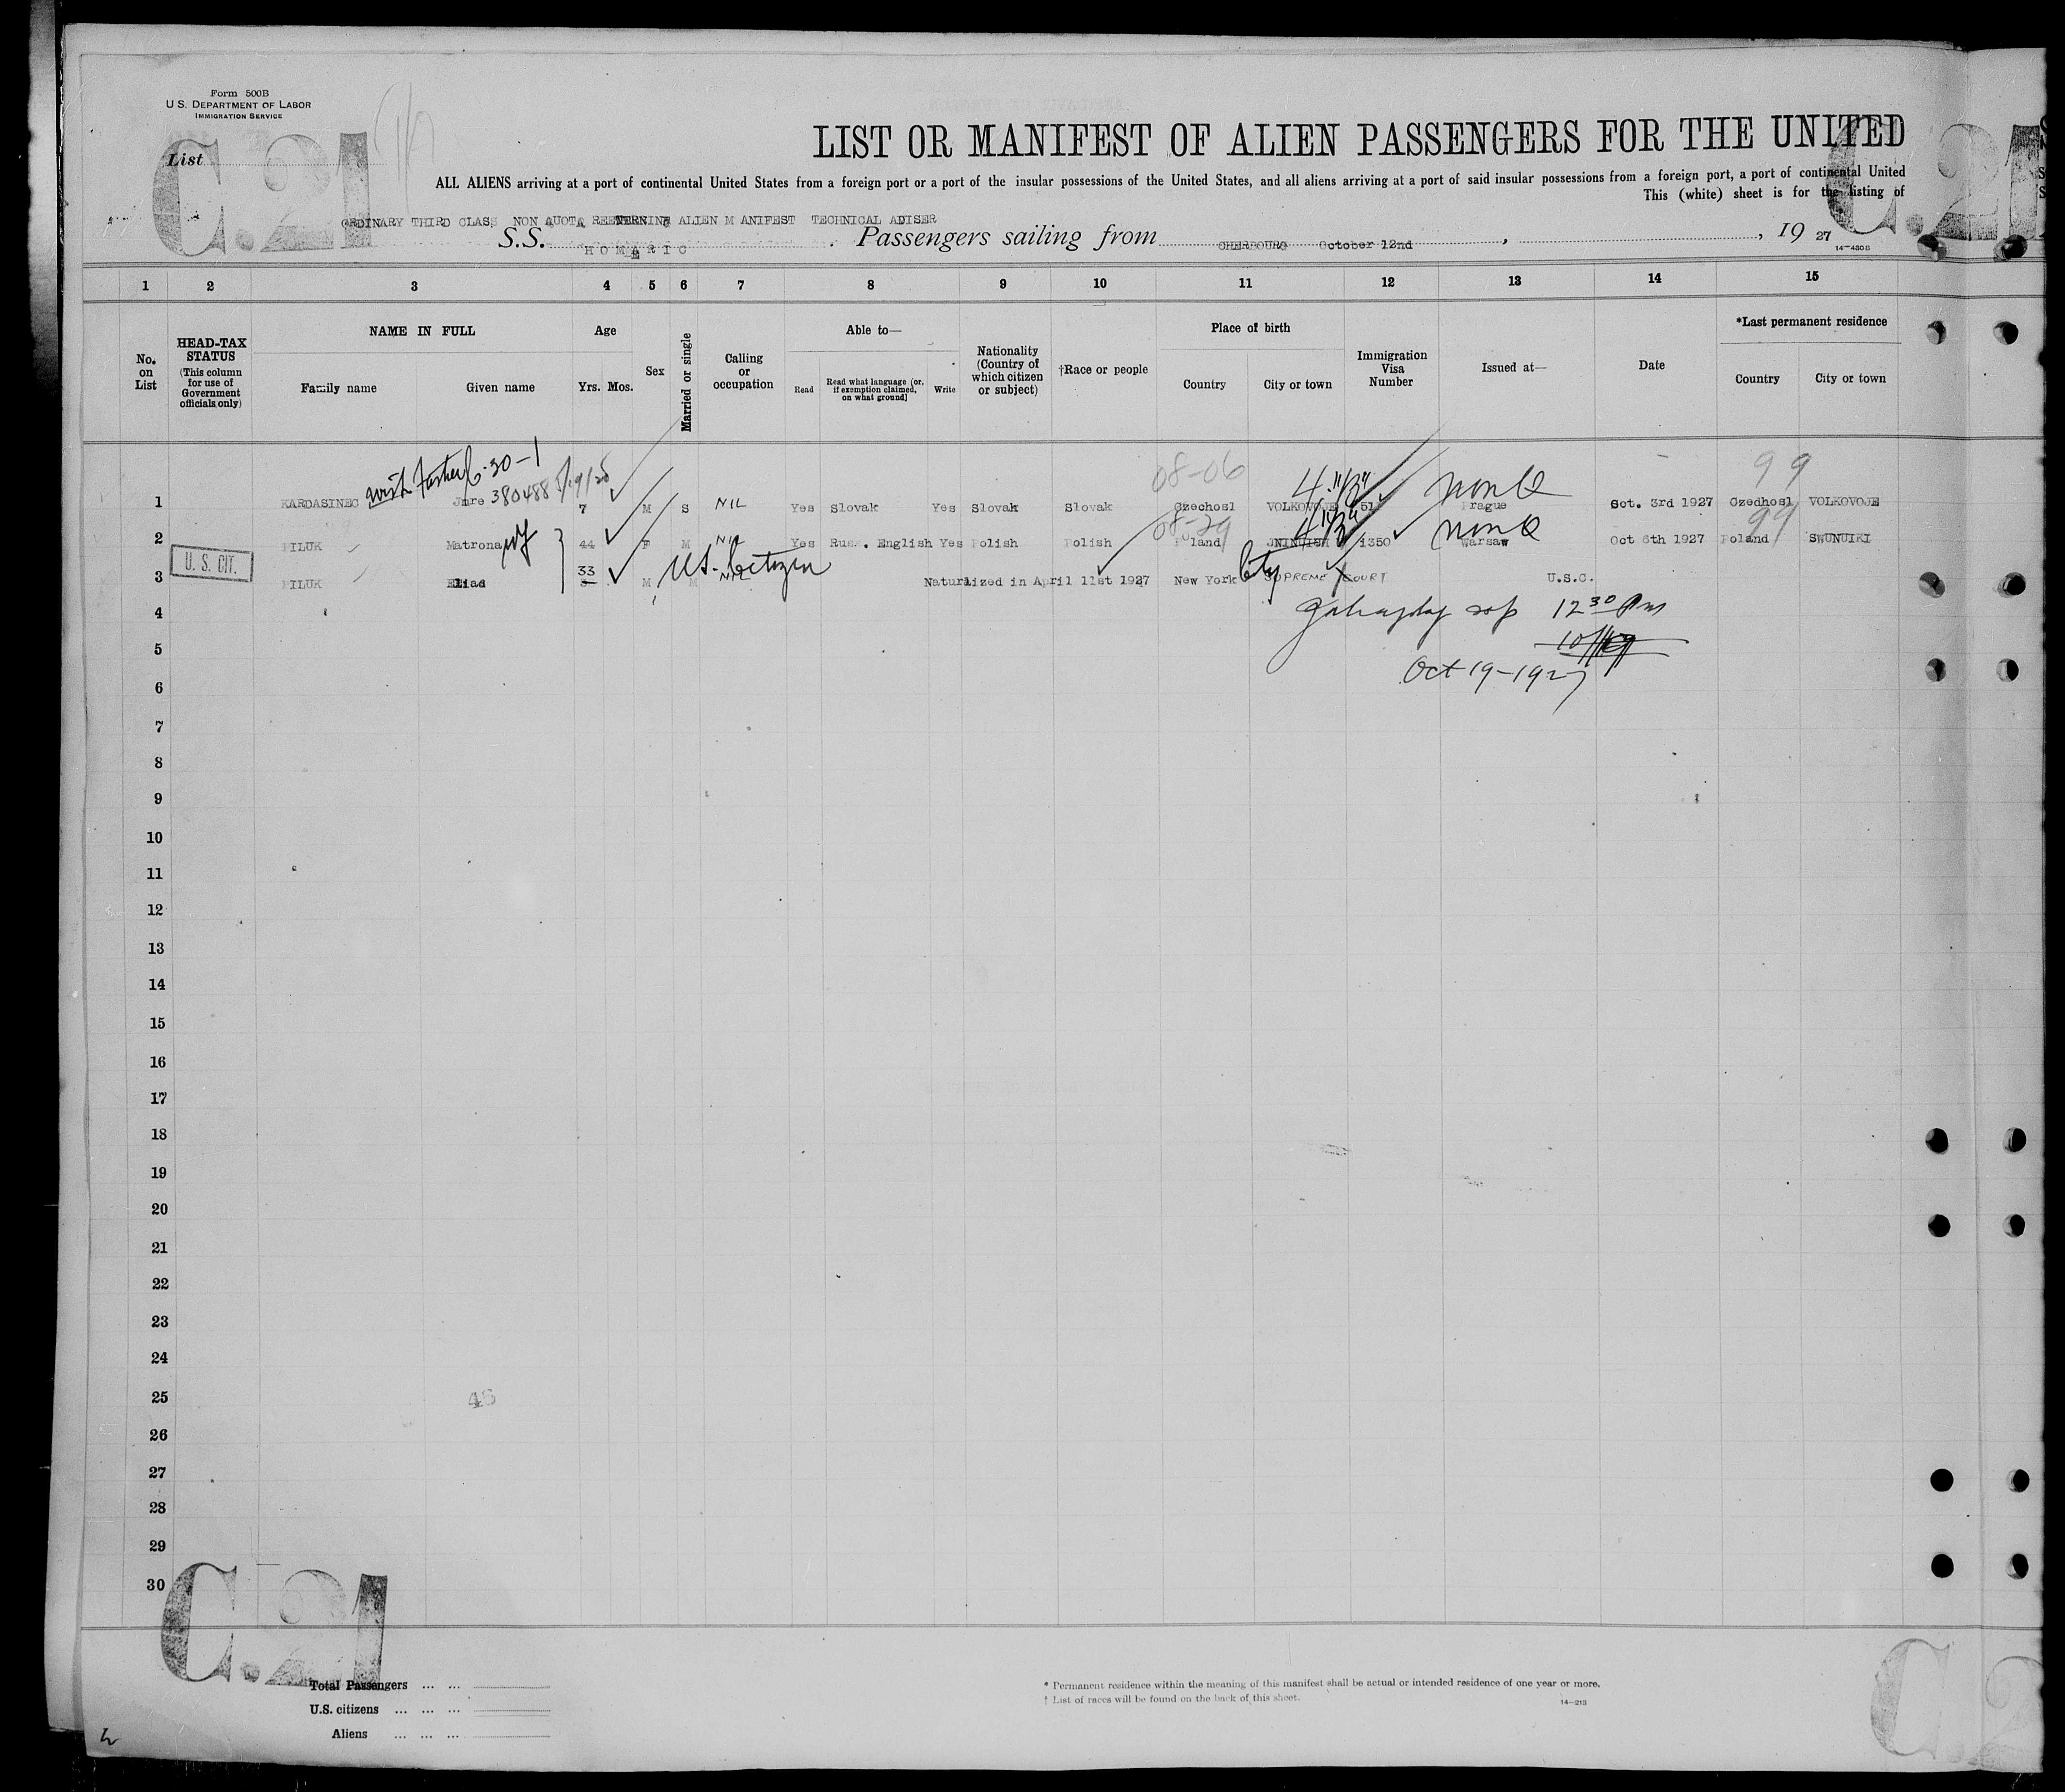 Form 500B
U. S. DEPARTMENT OF LABOR
IMMIGRATION SERVICE
C.21
C.21
List
LIST OR MANIFEST OF ALIEN PASSENGERS FOR THE UNITED
ALL ALIENS arriving at a port of continental United States from a foreign port or a port of the insular possessions of the United States, and all aliens arriving at a port of said insular possessions from a foreign port, a port of continental United
This (white) sheet is for the listing of
ORDINARY THIRD CLASS NON QUOTA ALIEN M ANIFEST TECHNICAL ADISER
S.S. HOMERIC Passengers sailing from CHERBOURG October 12nd, 19 27
14—430B
1 2 3 4 5 6 7 8 9 10 11 12 13 14 15
No. on List
HEAD-TAX STATUS (This column for use of Government officials only)
NAME IN FULL
Family name Given name
Age
Yrs. Mos.
Sex
Married or single
Calling or occupation
Able to—
Read Read what language [or, if exemption claimed, on what ground] Write
Nationality (Country of which citizen or subject)
†Race or people
Place of birth
Country City or town
Immigration Visa Number
Issued at—
Date
*Last permanent residence
Country City or town
with Father 6-30-1
380488 5/19/25
08-06 99
1 KARDASINEC Jmre 7 M S NIL Yes Slovak Yes Slovak Slovak Czechosl VOLKOVOJE 51 Prague non Q Oct. 3rd 1927 Czedhosl VOLKOVOJE
08-29 99
2 PILUK Matrona wf 44 F M NIL Yes Russ. English Yes Polish Polish Poland 1350 Warsaw non Q Oct 6th 1927 Poland SWUNUIKI
U. S. CIT.
3 PILUK Eliad 33 M M NIL U.S. Citizen Naturalized in April 11st 1927 New York City SUPREME COURT U.S.C.
4 12 30 Pm
5
Oct 19-1927
6
7
8
9
10
11
12
13
14
15
16
17
18
19
20
21
22
23
24
25 48
26
27
28
29
30
C.21
C.2
Total Passengers ... ...
U.S. citizens ... ... ...
Aliens ... ... ...
* Permanent residence within the meaning of this manifest shall be actual or intended residence of one year or more.
† List of races will be found on the back of this sheet.
14—213